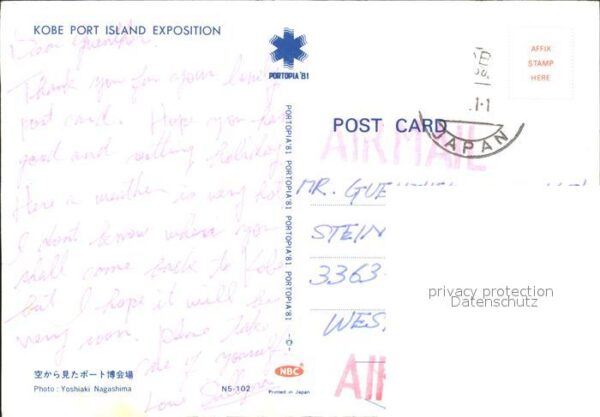 KOBE PORT ISLAND EXPOSITION
Dear
Thank you for your lovely
post card. Hope you have
good and
Here a weather is very hot
I don't know when you
shall come back to Kobe
but I hope it will be
very soon. Please take
care of yourself.
Love
空から見たポート博会場
Photo: Yoshiaki Nagashima
N5-102
PORTOPIA'81
PORTOPIA'81 PORTOPIA'81 PORTOPIA'81 PORTOPIA'81
NBC
Printed in Japan
POST CARD
AIR MAIL
AFFIX
STAMP
HERE
JAPAN
MR.
STEIN
3363
WES
privacy protection
Datenschutz
AI